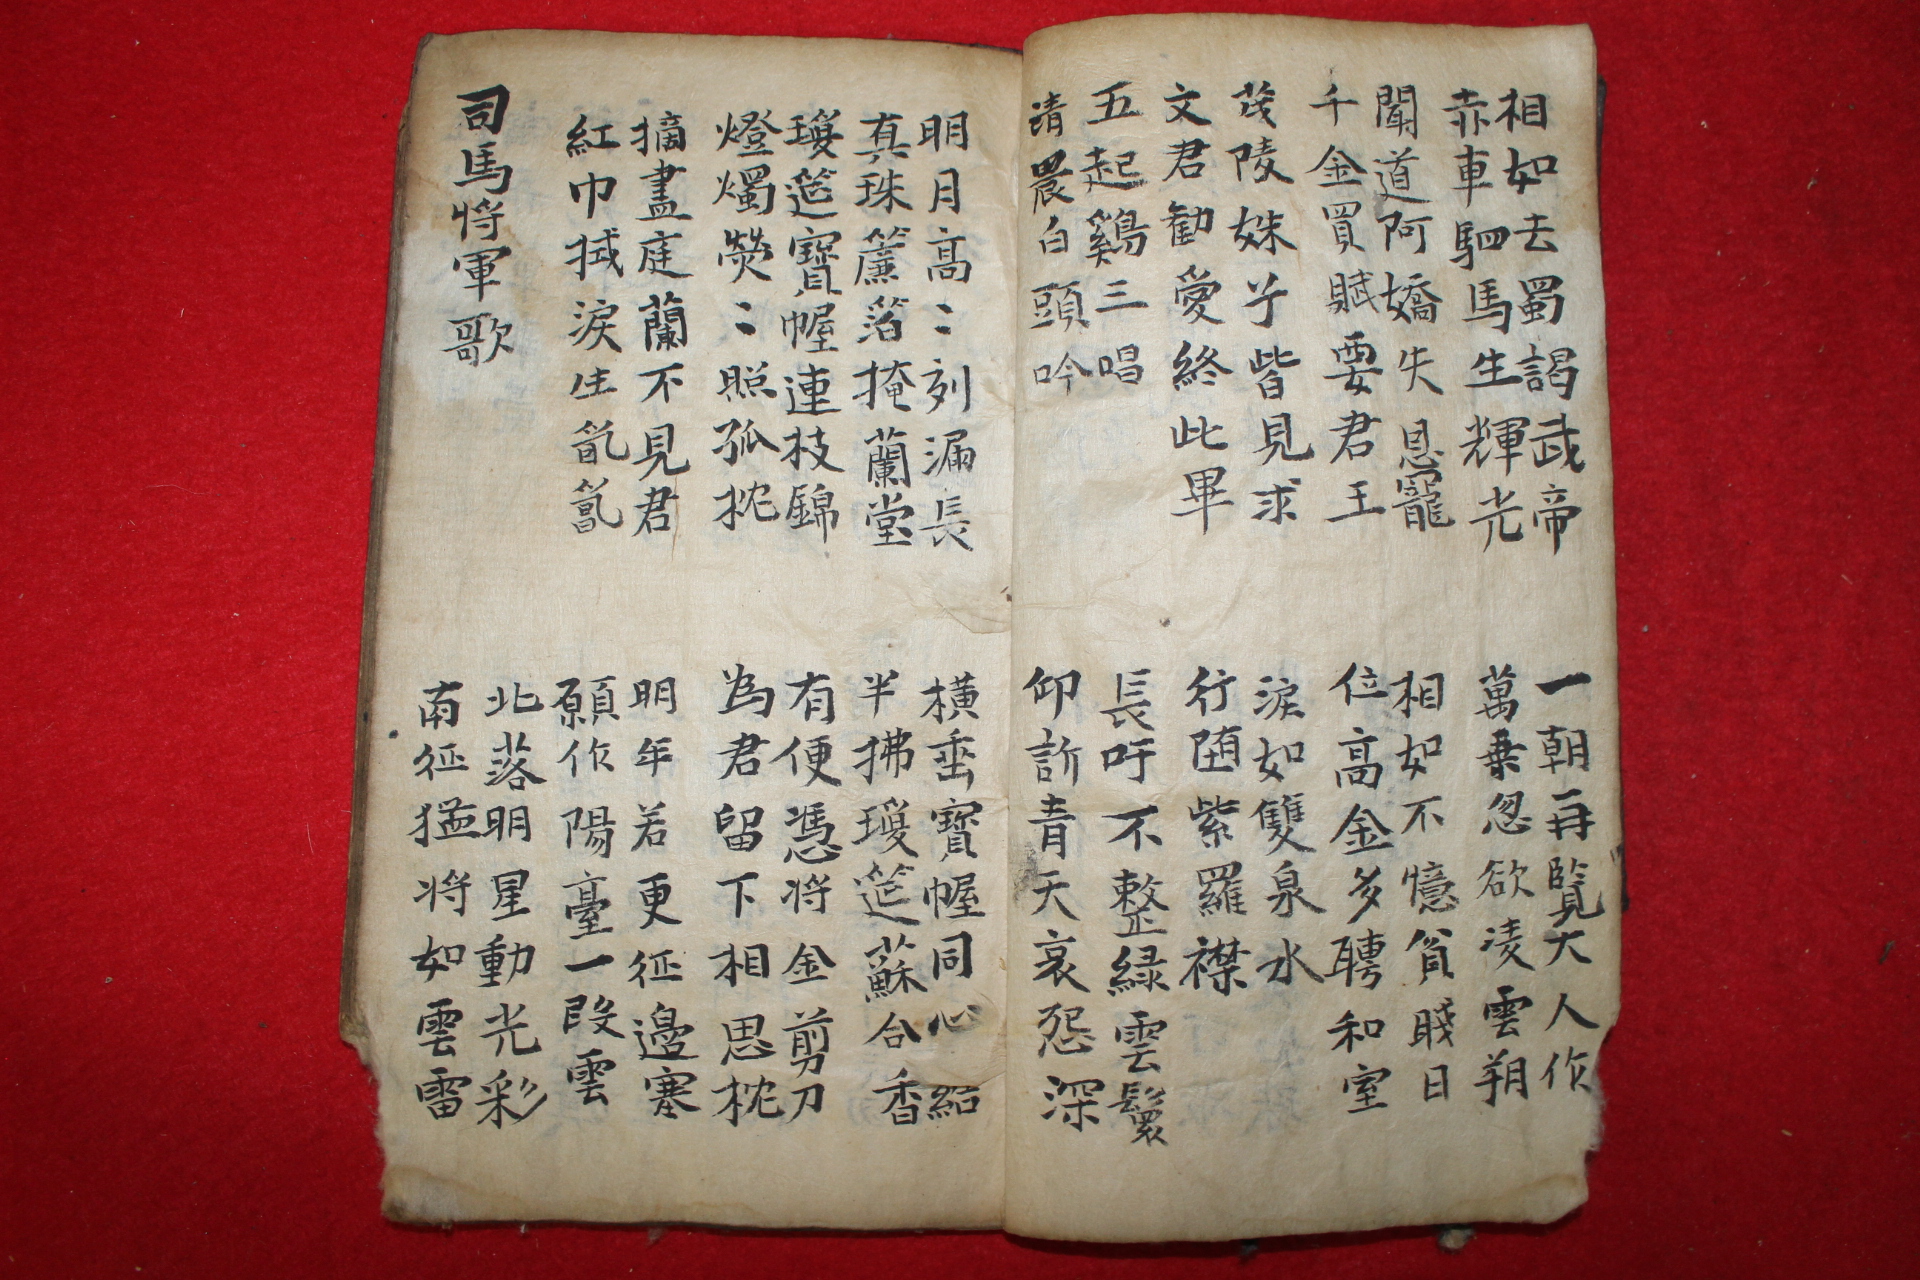 相如去蜀謁武帝
赤車駟馬生輝光
一朝再覽大人作
萬乗忽欲凌雲翔
聞道阿嬌失恩寵
千金買賦要君王
相如不憶貧賤日
位高金多聘和室
茂陵姝子皆見求
文君勸愛終此畢
淚如雙泉水
行堕紫羅襟
五起鷄三唱
清晨白頭吟
長吁不整緑雲鬟
仰訴青天哀怨深
明月高〻刻漏長
真珠簾箔掩蘭堂
橫垂寶幄同心結
半拂瓊筵蘇合香
瓊筵寶幄連枝錦
燈燭熒〻照孤枕
有便憑将金剪刀
為君留下相思枕
摘盡庭蘭不見君
紅巾拭淚生氤氳
明年若更征邊塞
願作陽臺一段雲
司馬将軍歌
北落明星動光彩
南征猛将如雲雷